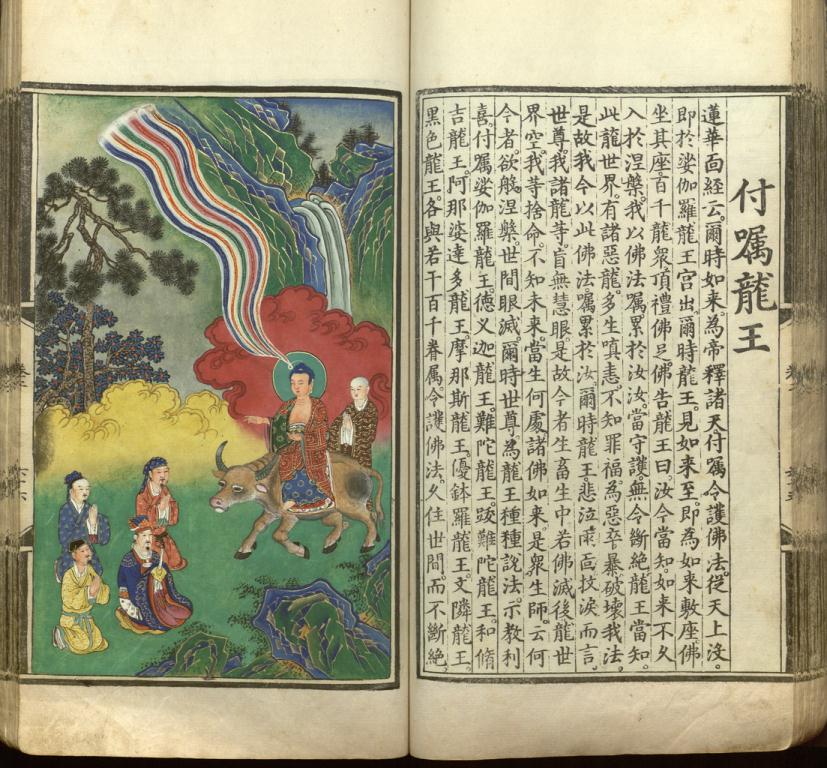 付嘱龍王
蓮華面經云。爾時如来。為帝釋諸天付嘱。令護佛法。從天上没。
即於娑伽羅龍王宫出。爾時龍王。見如来至。即為如来敷座。佛
坐其座。百千龍衆。頂禮佛足。佛告龍王曰。汝今當知。如来不久
入於涅槃。我以佛法。嘱累於汝。汝當守護。無令斷絶。龍王當知。
此龍世界。有諸惡龍。多生嗔恚。不知罪福。為惡卒暴。破壞我法。
是故我今以此佛法。嘱累於汝。爾時龍王。悲泣雨面。抆淚而言。
世尊。我諸龍等。盲無慧眼。是故今者。生畜生中。若佛滅後。龍世
界空。我等捨命。不知未来。當生何處。諸佛如来。是衆生師。云何
今者。欲般涅槃。世間眼滅。爾時世尊。為龍王種種說法。示教利
喜。付嘱娑伽羅龍王。德义迦龍王。難陀龍王。跋難陀龍王。和脩
吉龍王。阿那婆達多龍王。摩那斯龍王。優鉢羅龍王。文隣龍王。
黑色龍王。各與若干百千眷属。令護佛法。久住世間。而不斷絶。